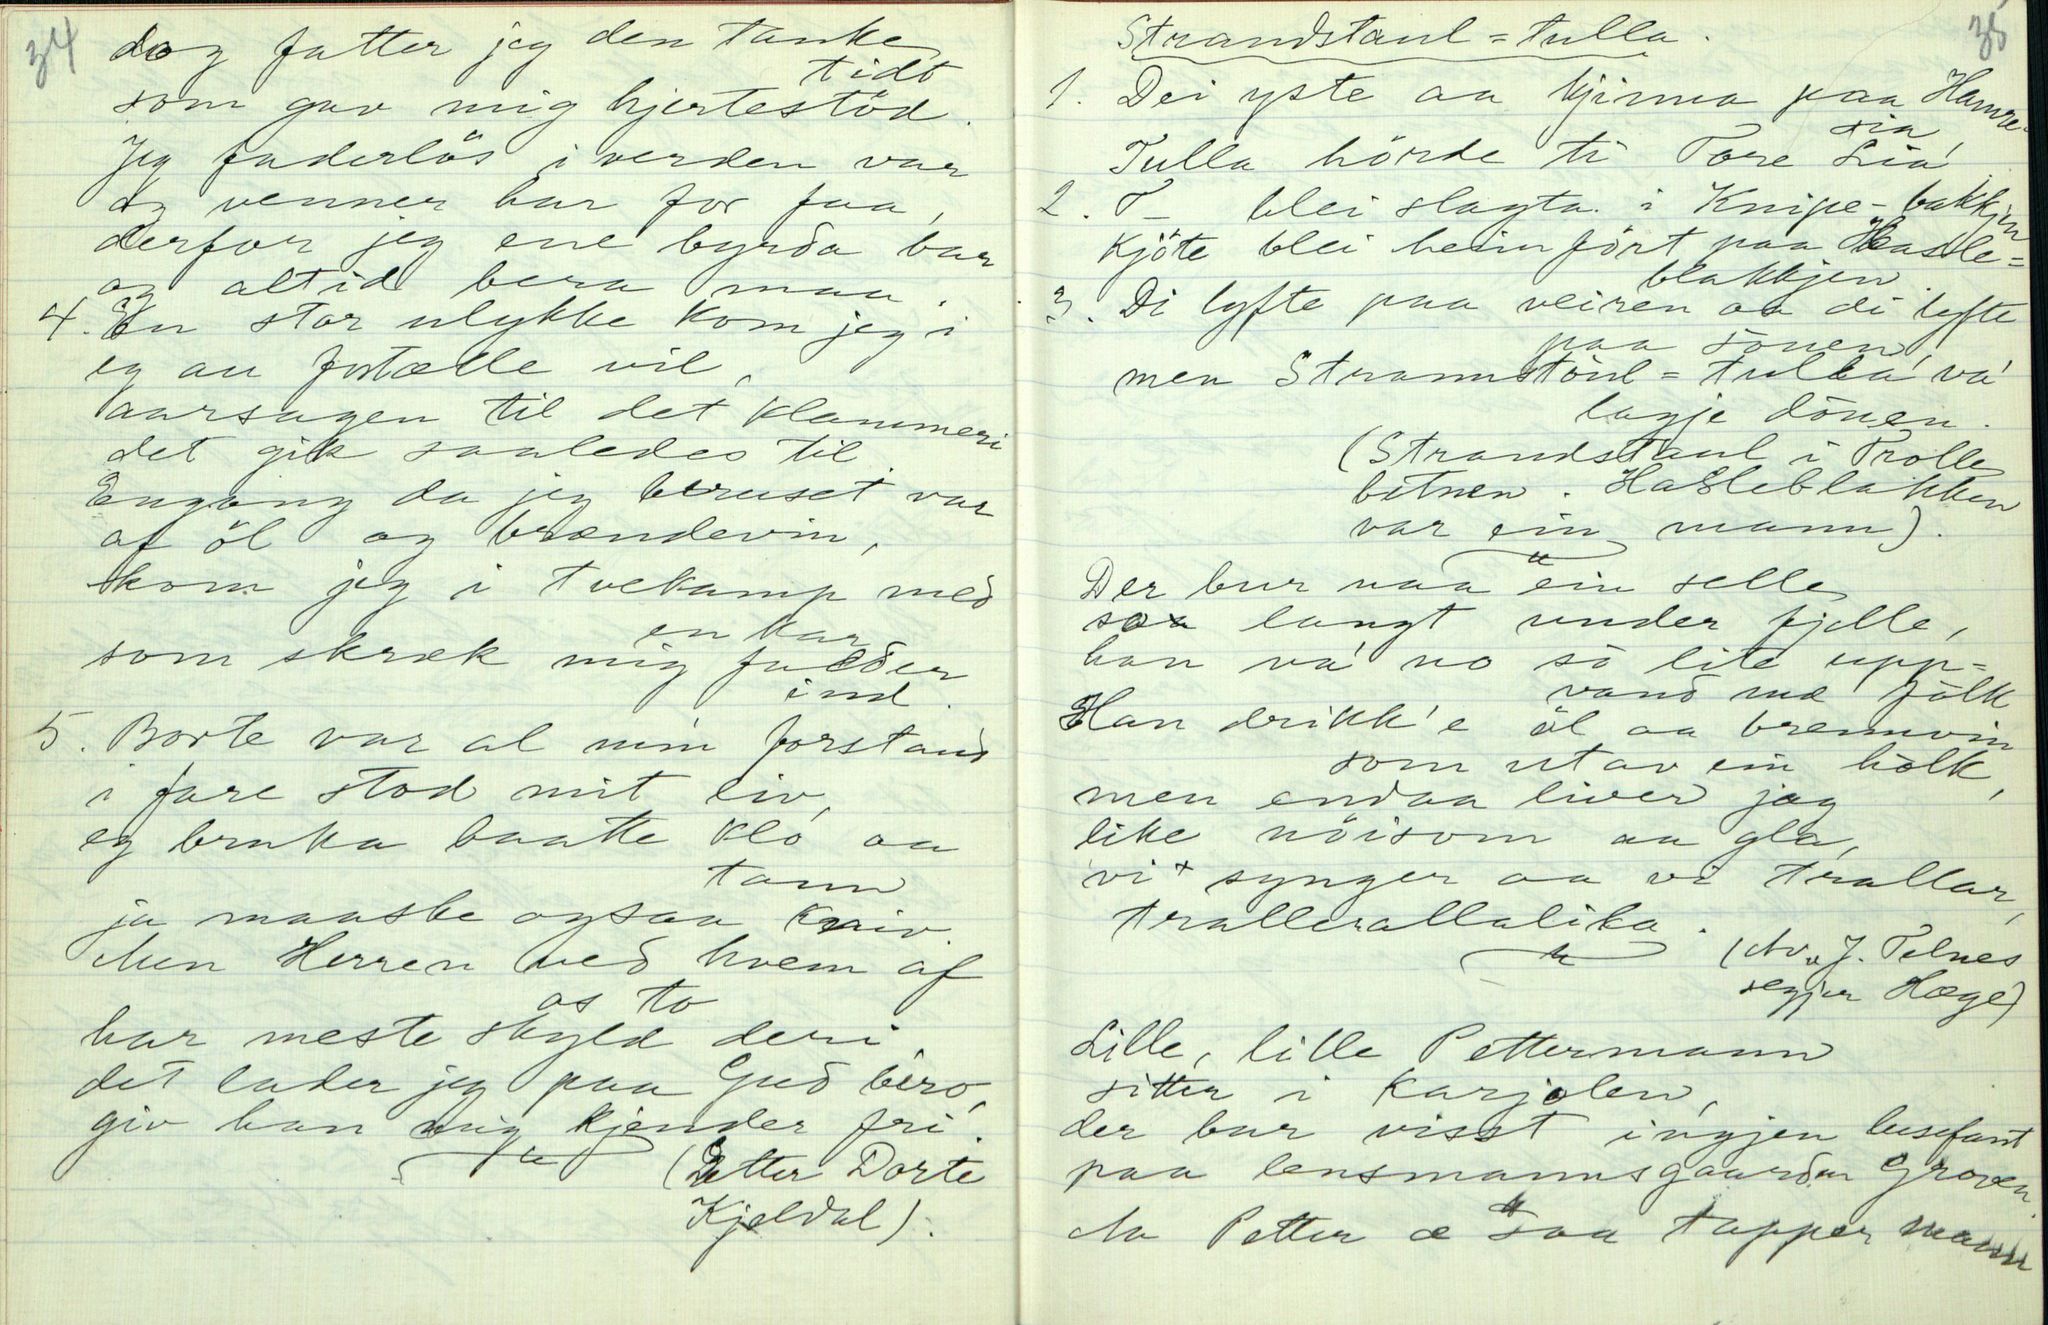 34
dog fatter jeg den tanke
tidt
som gav mig hjertestöd.
Jeg faderlös i verden var
og venner har for faa,
derfor jeg ene byrda bar
og altid bera maa.
4. En stor ulykke kom jeg i
eg au fortælle vil,
aarsagen til det klammeri
det gik saaledes til
Engang da jeg beruset var
af öl og brændevin,
kom jeg i tvekamp med
en kar
som skræk mig fadder
ind.
5. Borte var al min forstand
i fare stod mit liv,
eg bruka baatte klo aa
tann
ja maaske ogsaa kniv.
Men Herren ved hvem af
os to
har meste skyld deri,
det lader jeg paa Gud bero,
giv han mig kjender fri.
(Etter Dorte
Kjeldal).
35
Strandstaul=tulla.
1. Dei yste aa kjinna paa Hamre-
sia,
Tulla hörde ti Tore Lia
2. T– blei slagta i Knipe-bakkjin
Kjöte blei heimfört paa Hasle=
blakkjen.
3. Di lyfte paa veiren aa di lyfte
paa sönen,
men Strannstöul=tulla va
lagje dönen.
(Strandstaul i Trolle
botnen. Hasleblakken
var ein mann).
Der bur naa ein selle
saa langt under fjelle,
han va no so lite upp=
vand mæ folk
Han drikk'e öl aa brennvin
som utav ein holk,
men endaa liver jag
like nöisom aa gla,
vi synger aa vi trallar,
trallerallalika.
(Av J. Telnes
segjer Hæge)
Lille, lille Pettermann
sitter i karjolen,
der bur visst ingjen lusefant
paa lensmannsgaarden Groven.
Aa Petter æ saa tapper mann